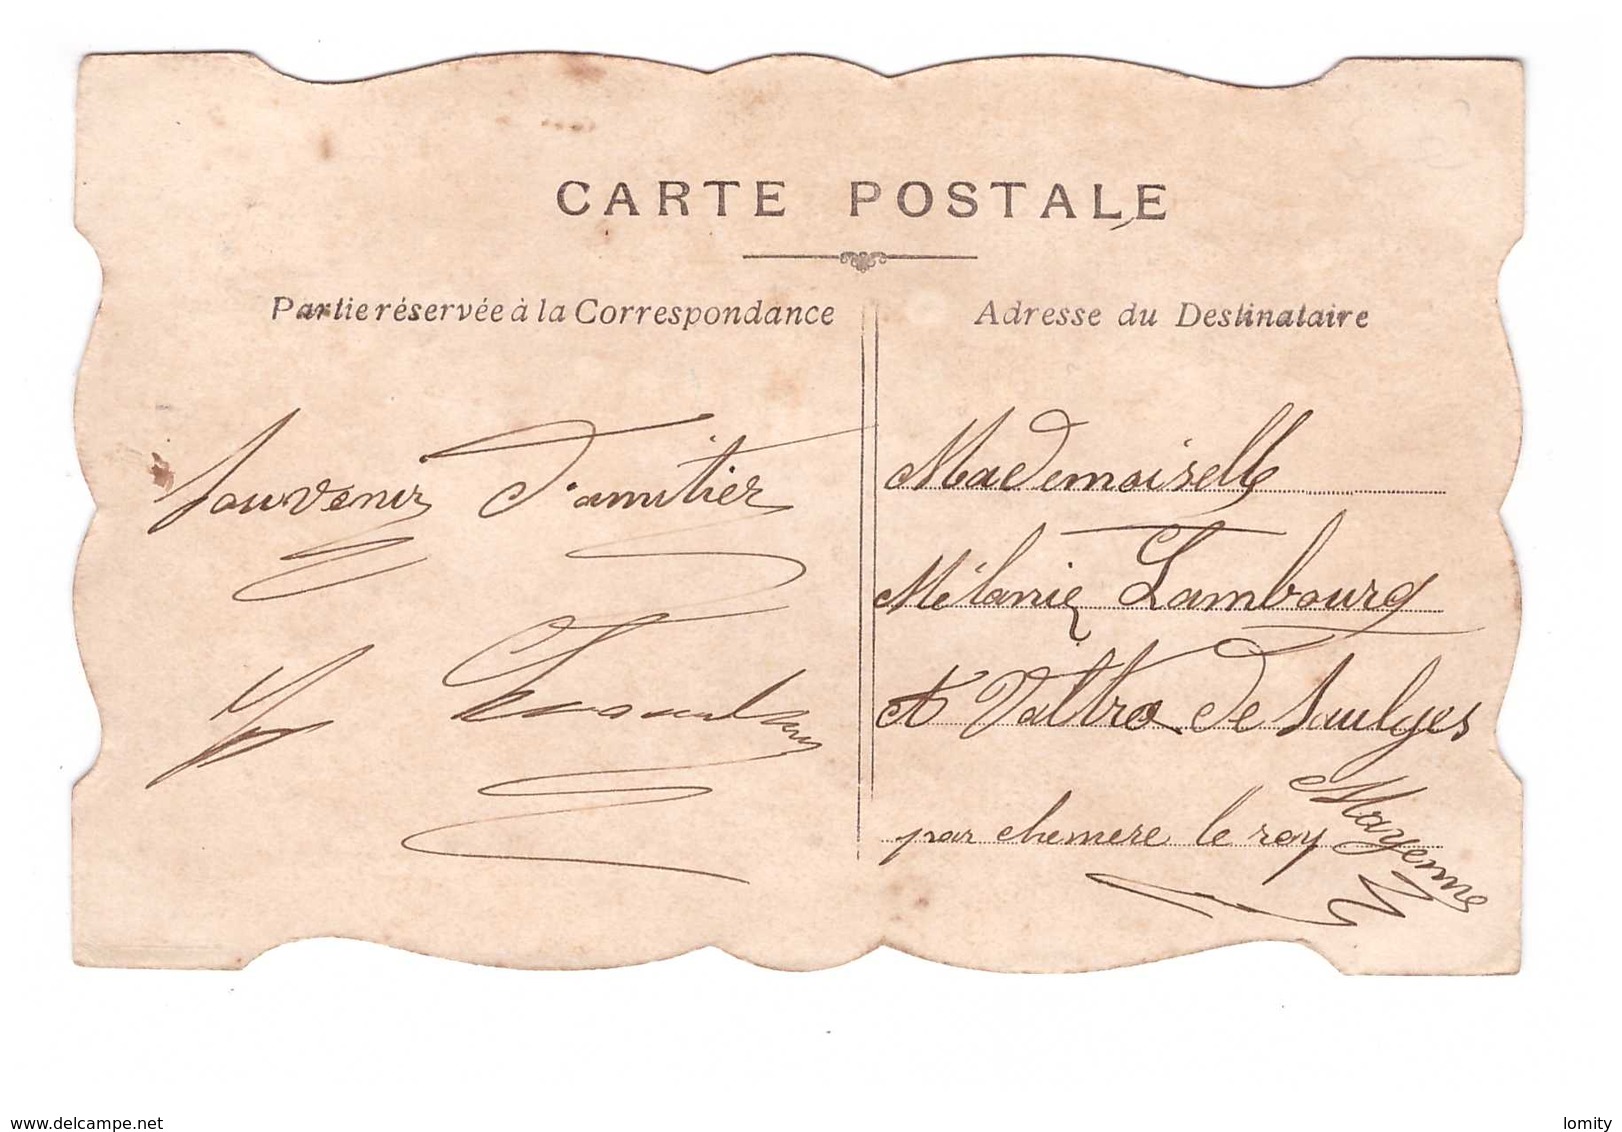 CARTE POSTALE
Partie réservée à la Correspondance
Souvenir D'amitier
Adresse du Destinataire
Mademoiselle
Mélanie Lambourg
A Valtro de Saulges
par chemere le roy
Mayenne
www.delcampe.net
lomity